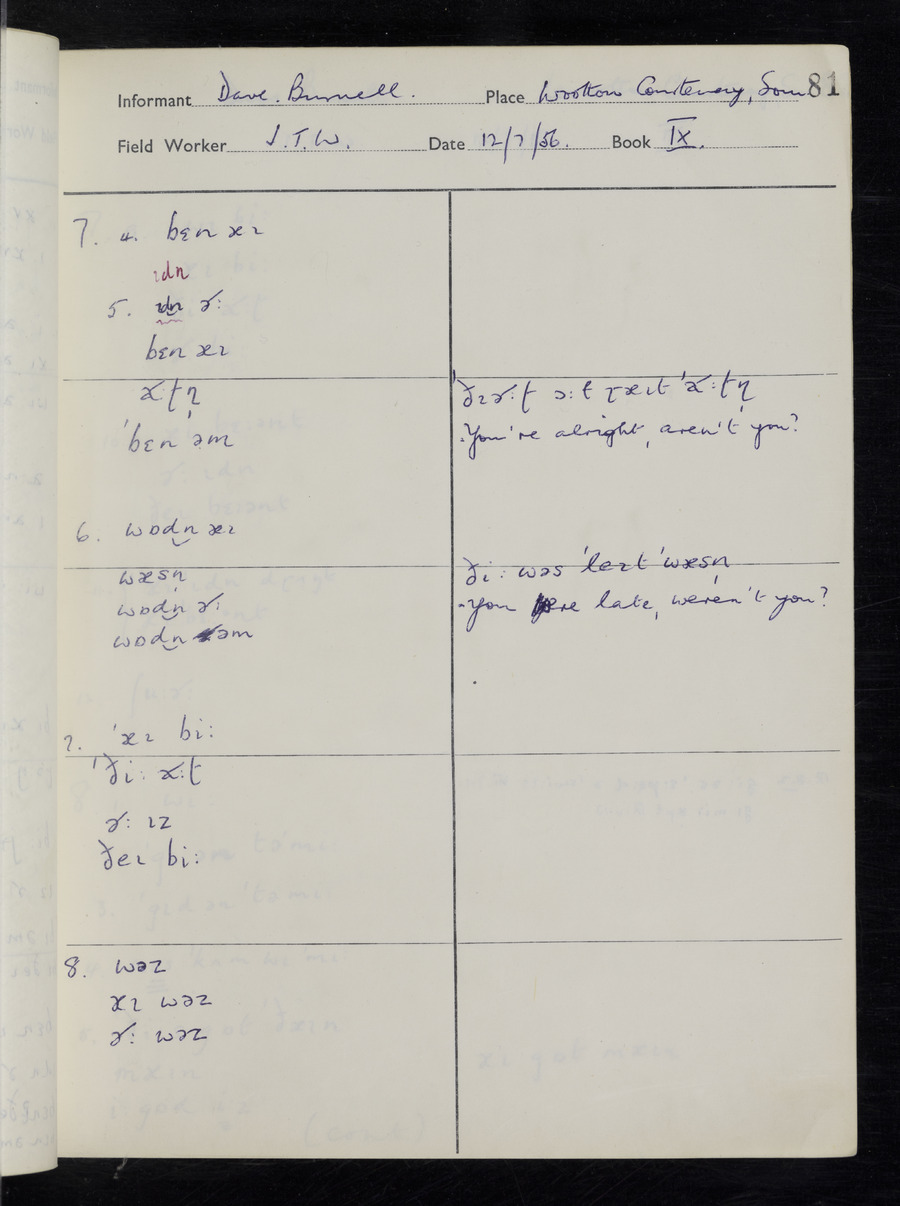 81
Informant Dave. Burnell. Place Wootton Courtenay, Som
Field Worker J.T.W. Date 12/7/56. Book IX.
7. 4. bɛn əɪ
ɪdn
5. ɪdn ɚ:
bɛn əɪ
'bɛn əm
You're alright, aren't you?
6. wɒdn əɪ
wæsn
wɒdn ɚ:
wɒdn əm
ði: wəs 'leɪt 'wæsn
You were late, weren't you?
7. 'əɪ bi:
ɚ: ɪz
ðeɪ bi:
8. wəz
əɪ wəz
ɚ: wəz